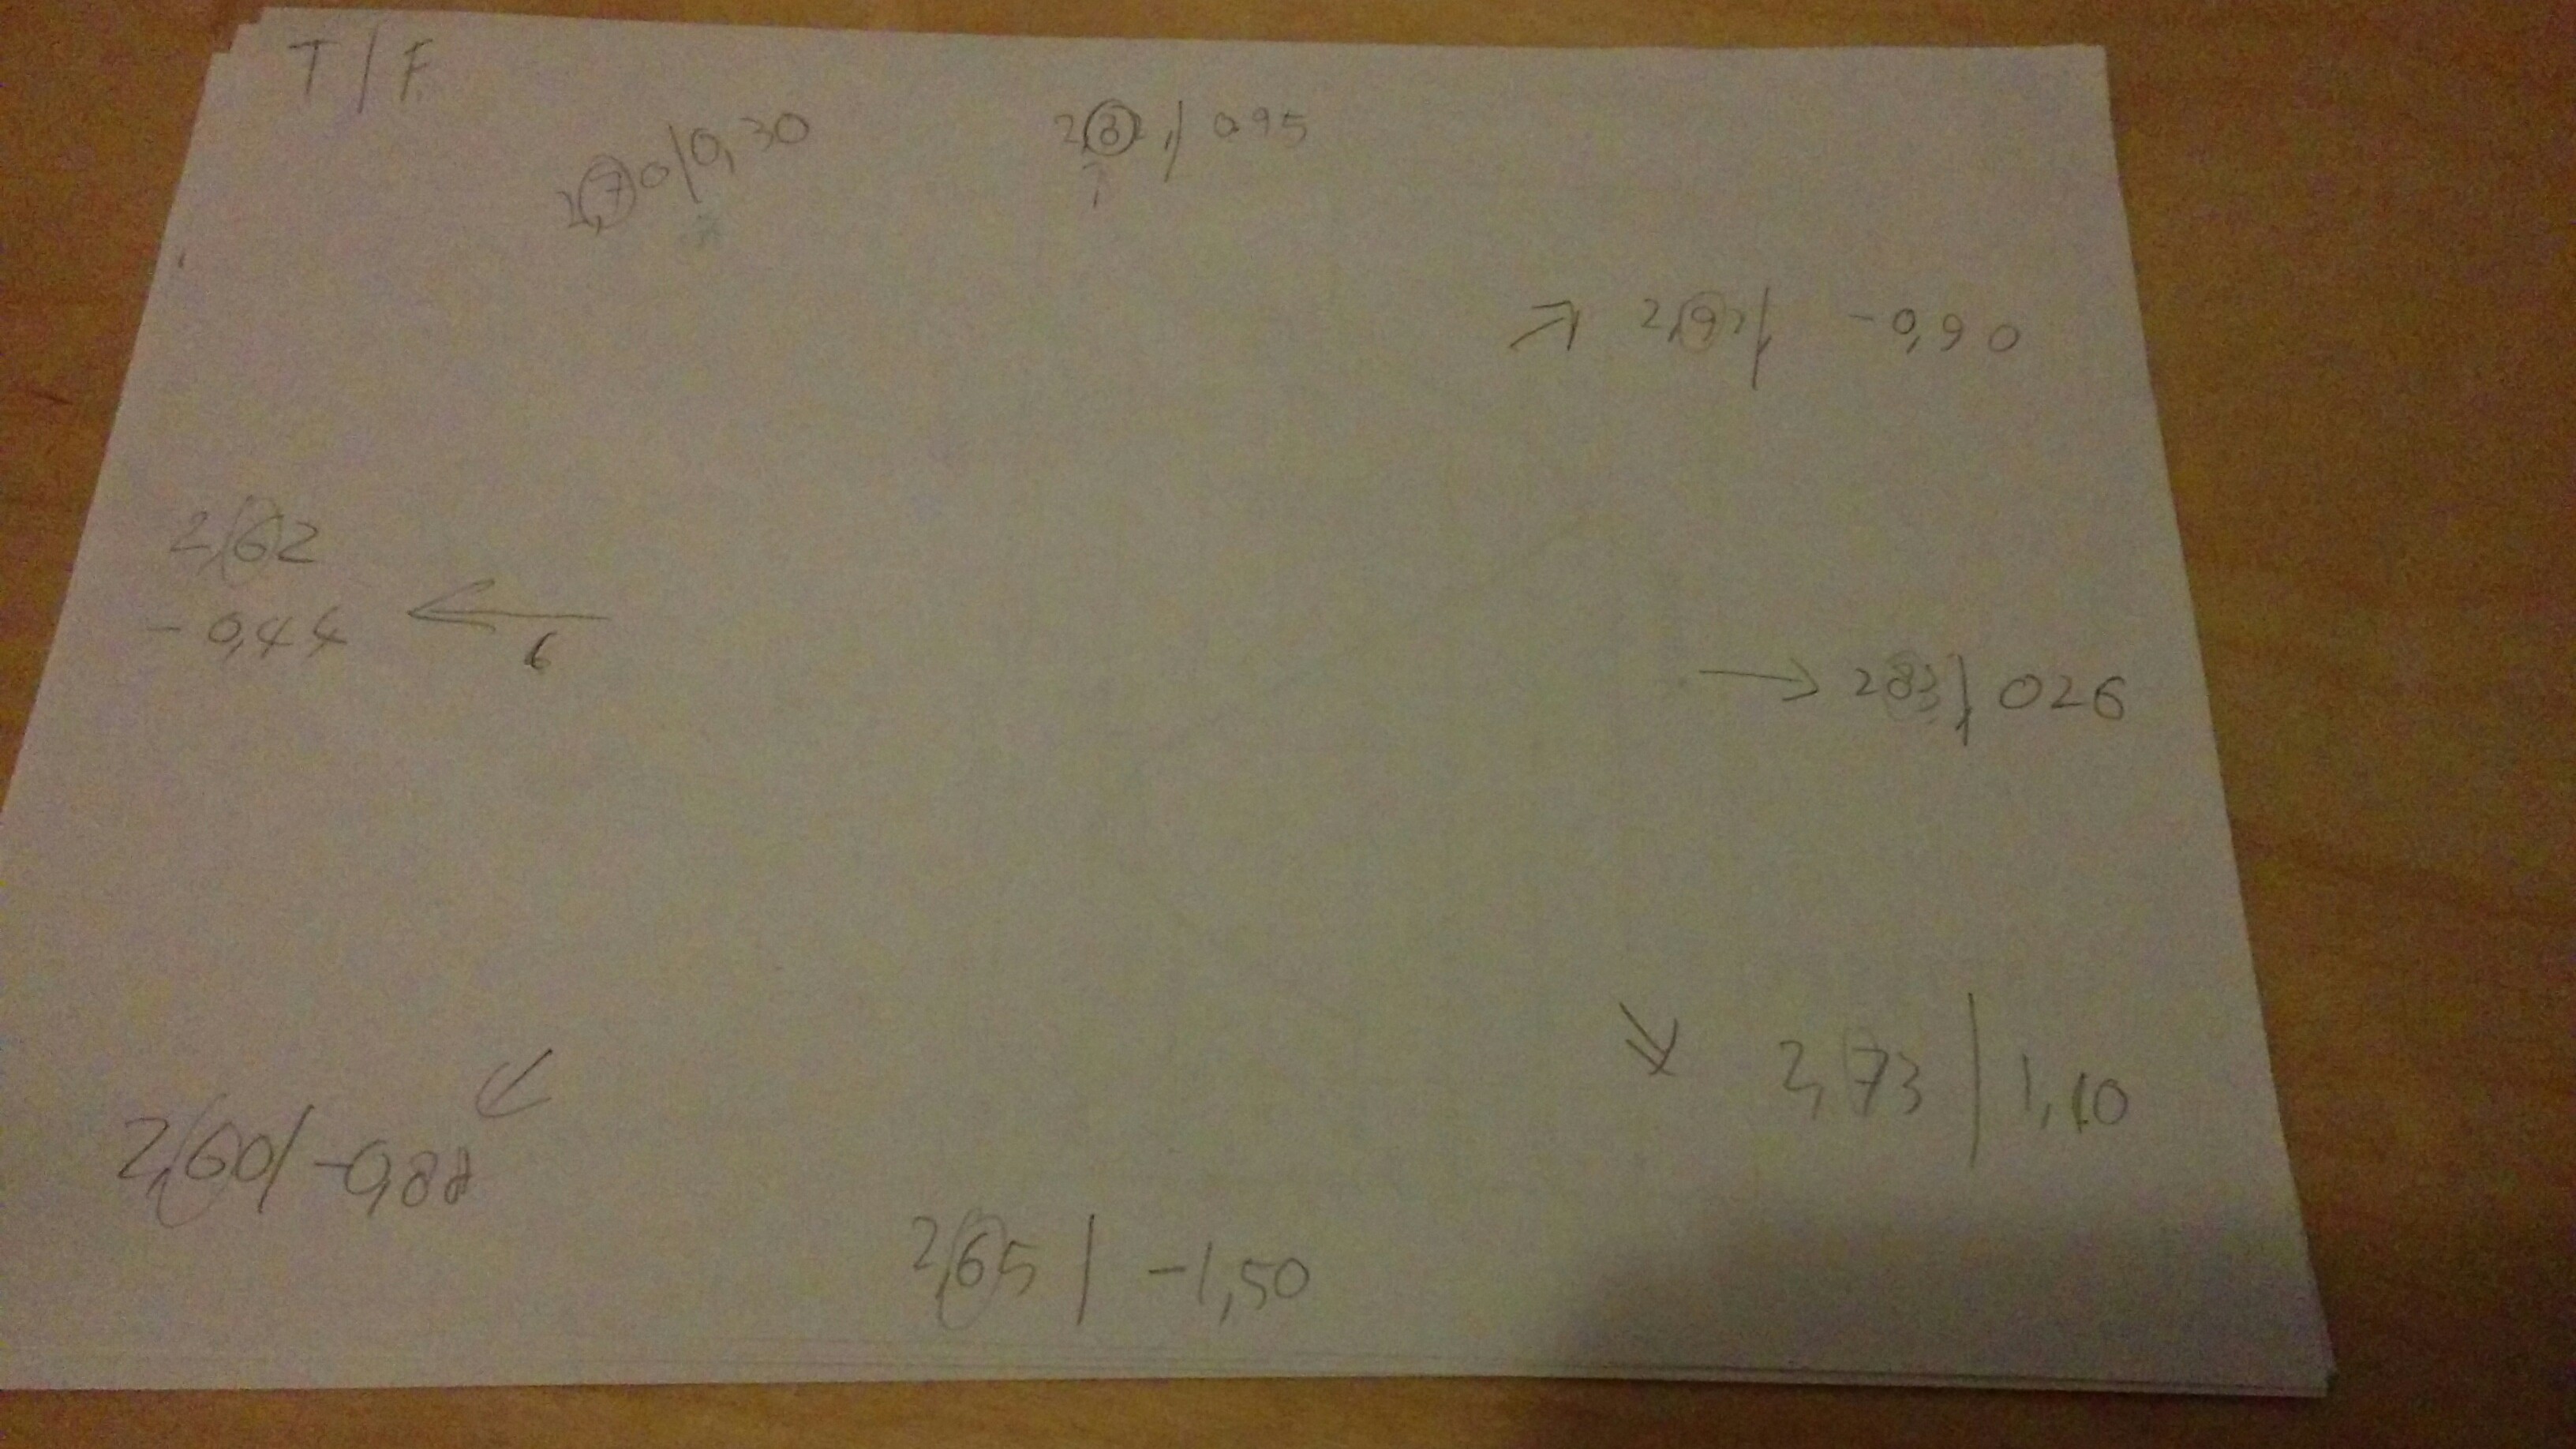 T/F
2,70/0,30
2, 095
2,92/ -0,90
2,62
-0,44
6
283/026
2,73 | 1,10
2,60/-0,88
2,65 | -1,50